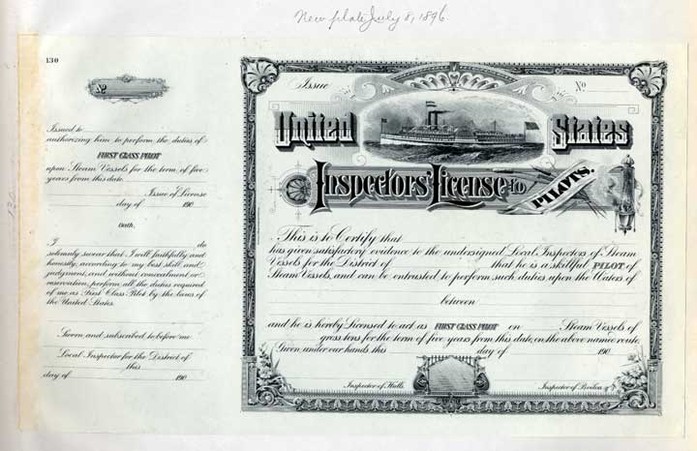 New plate July 8, 1896.
130
No
Issued to
authorizing him to perform the duties of
FIRST CLASS PILOT
upon Steam Vessels for the term of five
years from this date.
Issue of License
day of 190
Oath.
I do
solemnly swear that I will faithfully and
honestly, according to my best skill and
judgment, and without concealment or
reservation, perform all the duties required
of me as First Class Pilot by the laws of
the United States.
Sworn and subscribed to before me
Local Inspector for the District of
this
day of 190
Issue No
United States
Inspectors' License to PILOTS.
This is to Certify that
has given satisfactory evidence to the undersigned Local Inspectors of Steam
Vessels for the District of that he is a skillful PILOT of
Steam Vessels, and can be entrusted to perform such duties upon the Waters of
between
and he is hereby Licensed to act as FIRST CLASS PILOT on Steam Vessels of
gross tons for the term of five years from this date, on the above named route.
Given under our hands this day of 190
Inspector of Hulls. Inspector of Boilers.
130